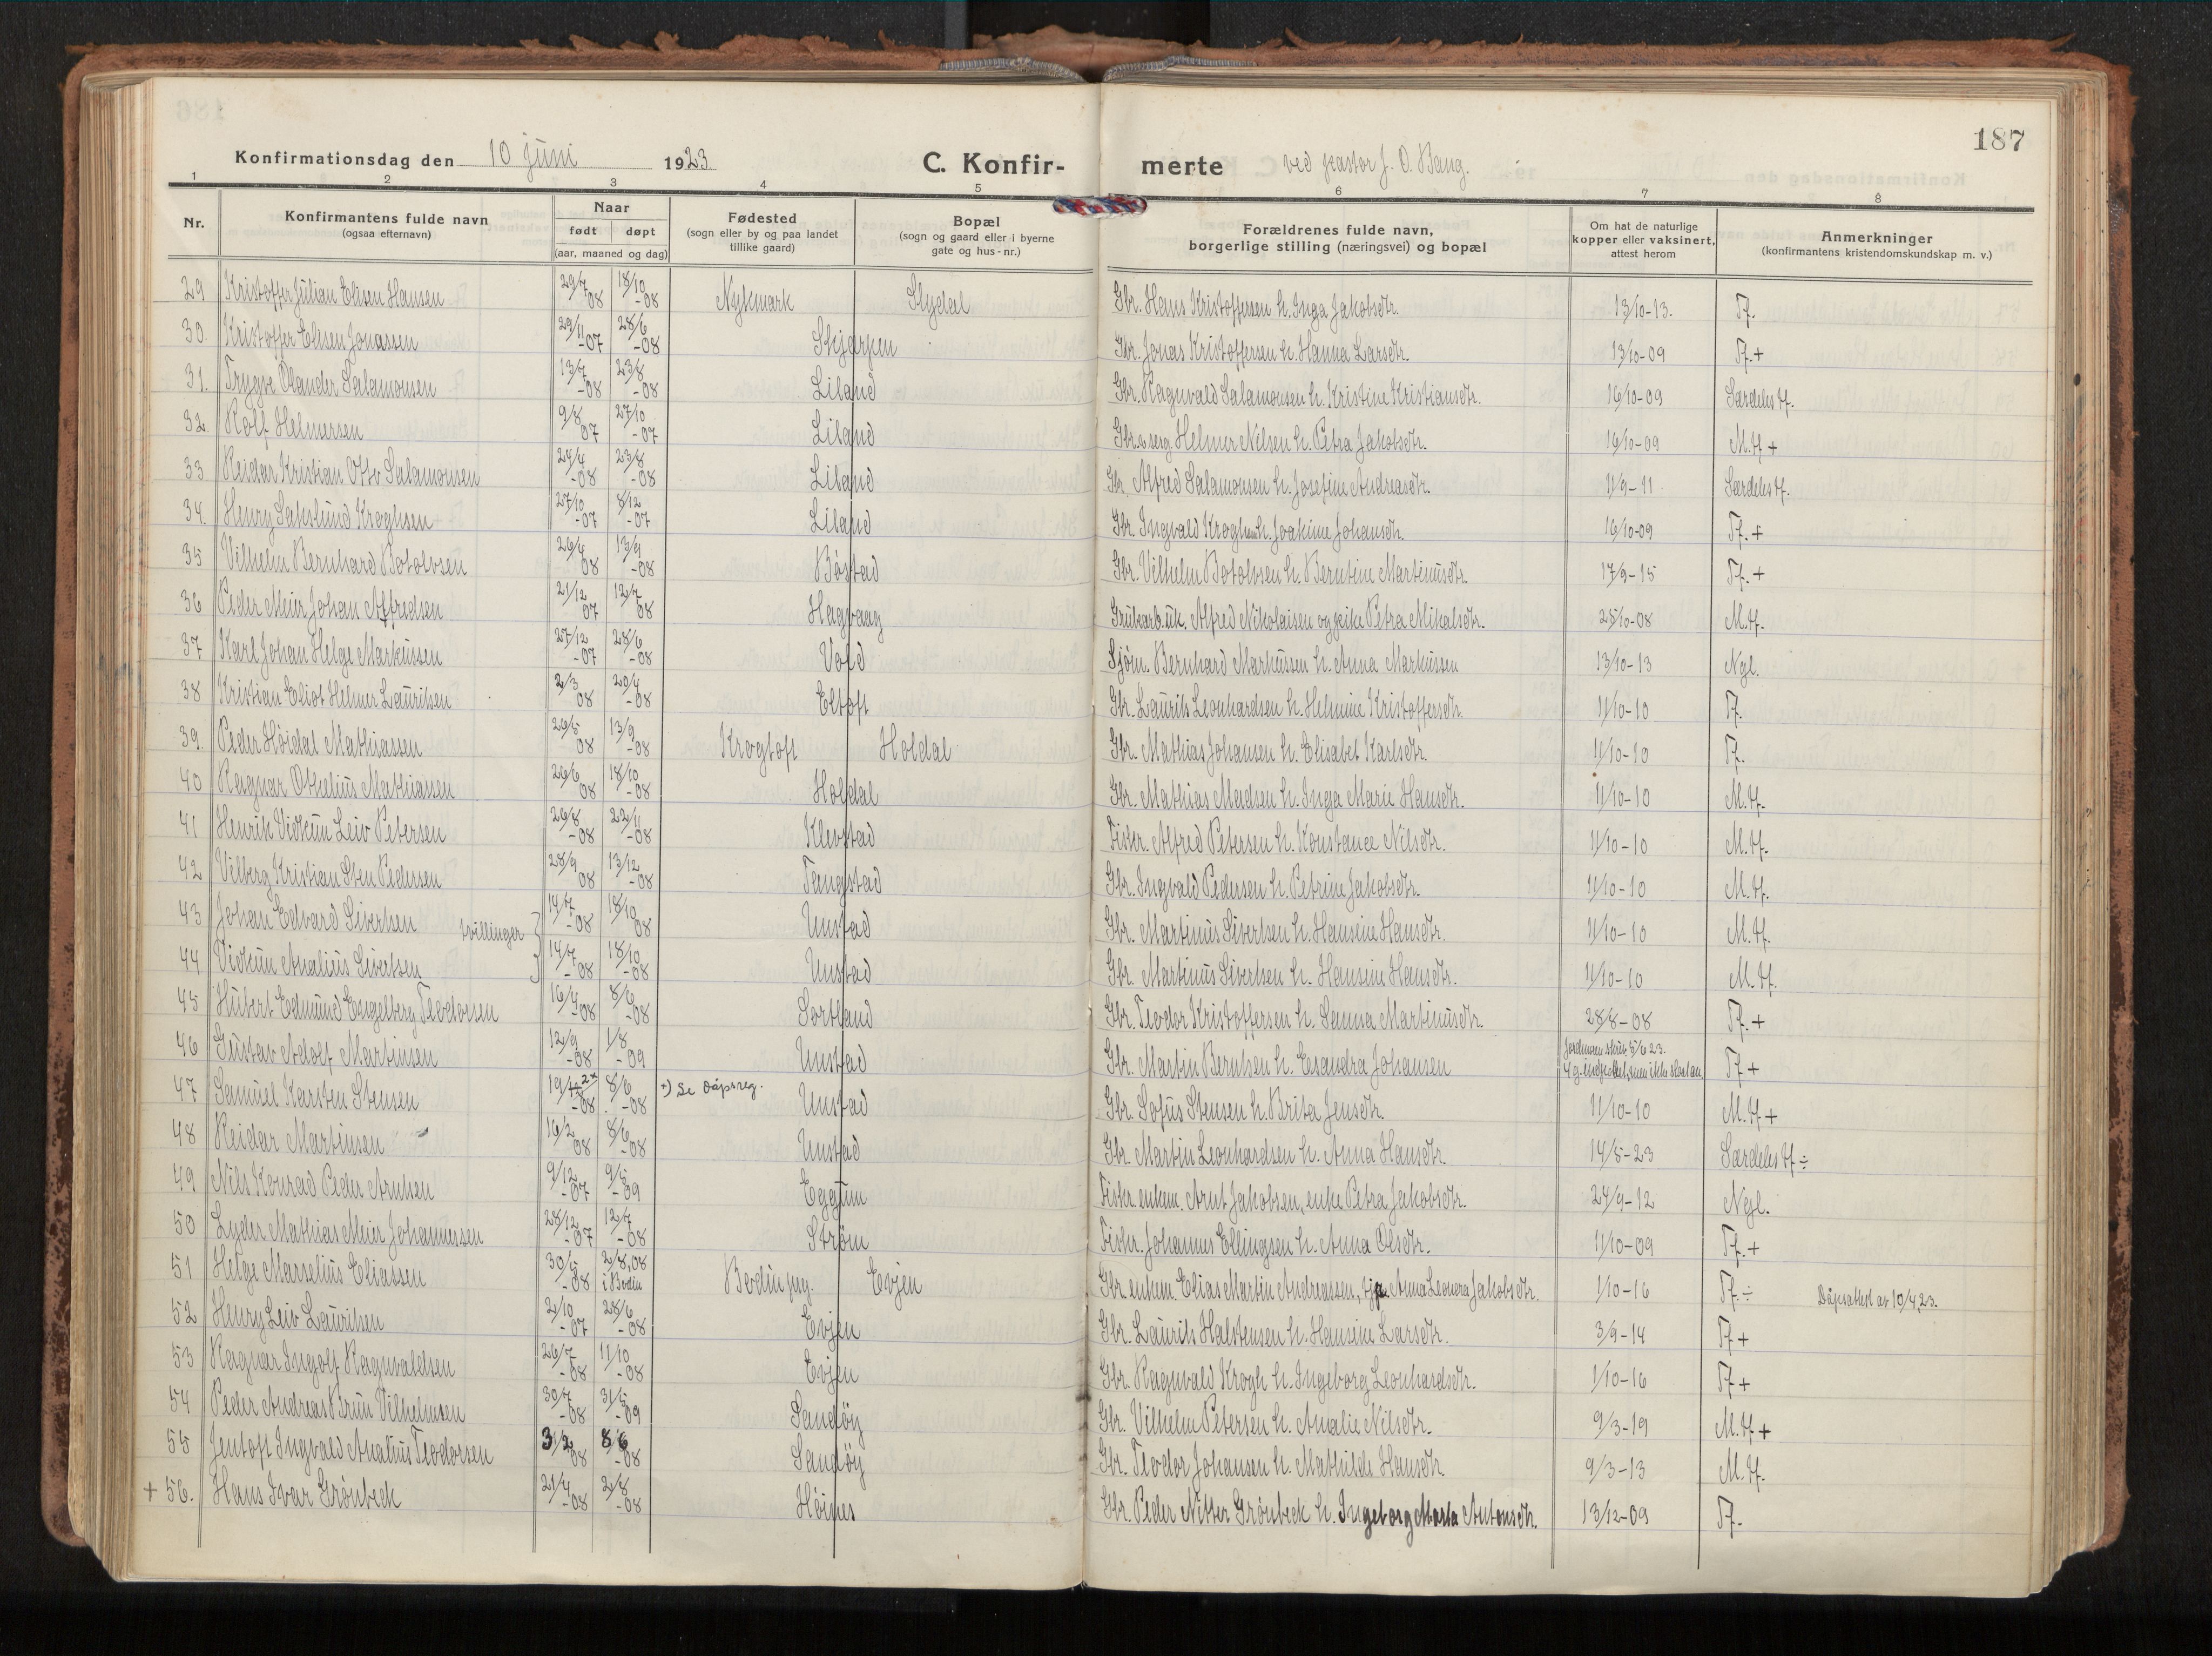 187
Konfirmationsdag den 10 juni 1923 C. Konfir- merte ved pastor J. O. Bang.
1 2 3 4 5 6 7 8
Nr. Konfirmantens fulde navn (ogsaa efternavn) Naar født døpt (aar, maaned og dag) Fødested (sogn eller by og paa landet tillike gaard) Bopæl (sogn og gaard eller i byerne gate og hus-nr.) Forældrenes fulde navn, borgerlige stilling (næringsvei) og bopæl Om hat de naturlige kopper eller vaksinert, attest herom Anmerkninger (konfirmantens kristendomskundskap m. v.)
29 Kristoffer Julian Elisen Hansen 29/7 08 18/10 -08 Nykmark Slydal Gbr. Hans Kristoffersen h. Inga Jakobsdtr. 13/10-13. Tf.
30. Kristoffer Elisen Jonassen 29/11 -07 28/6 -08 Skjerpen Gbr. Jonas Kristoffersen h. Hanna Larsdtr. 13/10-09 Tf.+
31. Trygve Olander Salamonsen 13/7 -08 23/8 -08 Liland Gbr. Ragnvald Salamonsen h. Kristine Kristiansdtr. 16/10-09 Særdeles tf.
32. Rolf Helmersen 9/8 07 27/10 -07 Liland Helmer Nilsen h. Petra Jakobsdtr. 16/10-09 M.tf +
33 Reidar Kristian Otto Salamonsen 24/4 -08 23/8 -08 Liland Gbr. Alfred Salamonsen h. Josefine Andreasdtr. 11/9-11 Særdeles tf.
34. Henry Sakslund Kroghsen 27/10 -07 8/12 -07 Liland Gbr. Ingvald Kroghsen h. Joakine Johansdtr. 16/10-09 Tf.+
35 Vilhelm Bernhard Botolvsen 26/4 08 13/9 -08 Bøstad Gbr. Vilhelm Botolvsen h. Berntine Martinusdtr. 17/9-15 Tf.+
36 Peder Meier Johan Alfredsen 21/12 07 12/7 08 Hagvaag Grubearb. uk. Alfred Nikolaisen og pike Petra Mikalsdtr. 25/10-08 M.tf.
37 Karl Johan Helge Markussen 27/12 -07 28/6 -08 Vold Sjøm. Bernhard Markussen h. Anna Markussen 13/10-13 Ngl.
38 Kristian Eliot Helmer Lauritsen 2/3 08 20/4 -08 Eltoft Gbr. Laurits Leonhardsen h. Helmine Kristoffersdtr. 11/10-10 Tf.
39. Peder Høidal Mathiassen 26/5 08 13/9 -08 Krogtoft Holdal Gbr. Mathias Johansen h. Elisabet Karlsdtr. 11/10-10 Tf.
40 Ragnar Othelius Mathiassen 26/6 08 18/10 -08 Holdal Gbr. Mathias Madsen h. Inga Marie Hansdtr. 11/10-10 M.tf.
41 Henrik Vidkun Leiv Petersen 26/8 -08 22/11 -08 Klevstad Fisker. Alfred Petersen h. Konstance Nilsdtr. 11/10-10 M.tf.
42 Vilberg Kristian Sten Pedersen 28/9 08 13/12 -08 Tangstad Gbr. Ingvald Pedersen h. Petrine Jakobsdtr. 11/10-10 M.tf.
43 Johan Edvard Sivertsen tvillinger 14/7 -08 18/10 08 Unstad Gbr. Martinus Sivertsen h. Hansine Hansdtr. 11/10-10 M.tf.
44 Vidkun Analius Sivertsen 14/7 -08 18/10 -08 Unstad Gbr. Martinus Sivertsen h. Hansine Hansdtr. 11/10-10 M.tf.
45 Hubert Edmund Engelberg Teodorsen 16/4 -08 8/6 -08 Sortland Gbr. Teodor Kristoffersen h. Sanna Martinusdtr. 28/8-08 Tf.+
46 Gustav Adolf Martinsen 12/9 -08 1/8 -09 Unstad Gbr. Martin Berntsen h. Esandra Johansen Jordmoen skriv. 5/6 23. 4 g. indpodet, men ikke slaat an. Tf +
47 Samuel Karsten Stensen 19/2+ -08 8/6 -08 +) Se dåpsreg. Unstad Gbr. Sofus Stensen h. Brita Jensdtr. 11/10-10 M.tf+
48 Reidar Martinsen 16/2 08 8/6 -08 Unstad Gbr. Martin Leonhardsen h. Anna Hansdtr. 14/5-23 Særdeles tf÷
49 Nils Konrad Peder Arntsen 9/12 -07 9/5 -09 Eggum Fisker. enkem. Arnt Jakobsen, enke Petra Jakobsdtr. 24/9-12 Ngl.
50 Lyder Mathias Meier Johannessen 28/12 -07 12/7 -08 Strøm Fisker. Johannes Ellingsen h. Anna Olsdtr. 11/10-09 Tf.+
51 Helge Marselius Eliassen 30/5 -08 2/8, 08 i Bodin Bodin pg. Evjen Gbr. enkem. Elias Martin Andreassen, Anna Leonora Jakobsdtr. 1/10-16 Tf.÷ Dåpsattest av 10/4, 23.
52 Henry Leiv Lauritsen 2/10 -07 28/6 -08 Evjen Gbr. Laurits Halstensen h. Hansine Larsdtr. 3/9-14 Tf+
53 Ragnar Ingolf Ragnvaldsen 26/7 -08 11/10 -08 Evjen Gbr. Ragnvald Krogh h. Ingeborg Leonhardsdtr. 1/10-16 Tf+
54 Peder Andreas Brun Vilhelmsen 30/7 -08 31/5 -09 Sandøy Gbr. Vilhelm Petersen h. Analie Nilsdtr. 9/3-19 M.tf+
55 Jentoft Ingvald Analius Teodorsen 31/2 08 8/6 -08 Sandøy Gbr. Teodor Johansen h. Mathilde Hansdtr. 9/3-13 M.tf.
+ 56. Hans Ivar Grønbeck 21/4 -08 2/8 -08 Høines Gbr. Peder Nitter Grønbeck h. Ingeborg Marta Antonsdtr. 13/12-09 Tf.